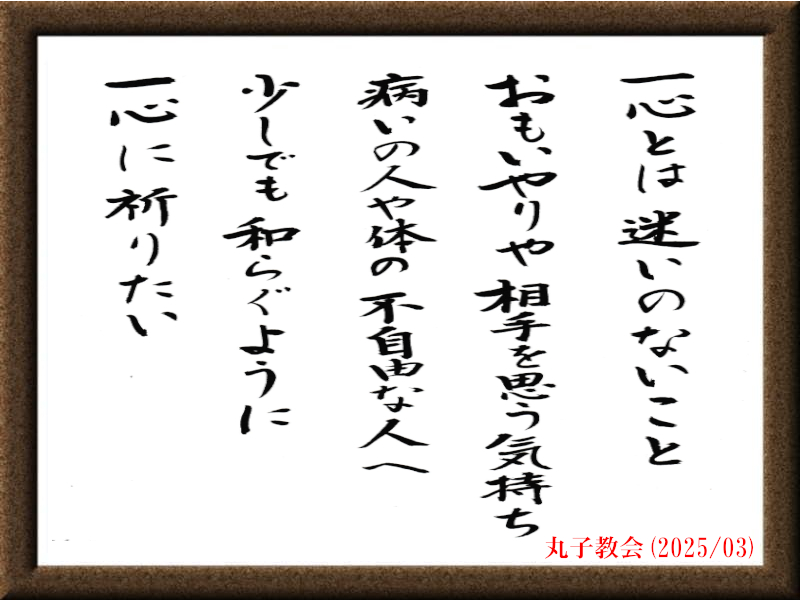 一心とは迷いのないこと
おもいやりや相手を思う気持ち
病いの人や体の不自由な人へ
少しでも和らぐように
一心に祈りたい
丸子教会(2025/03)